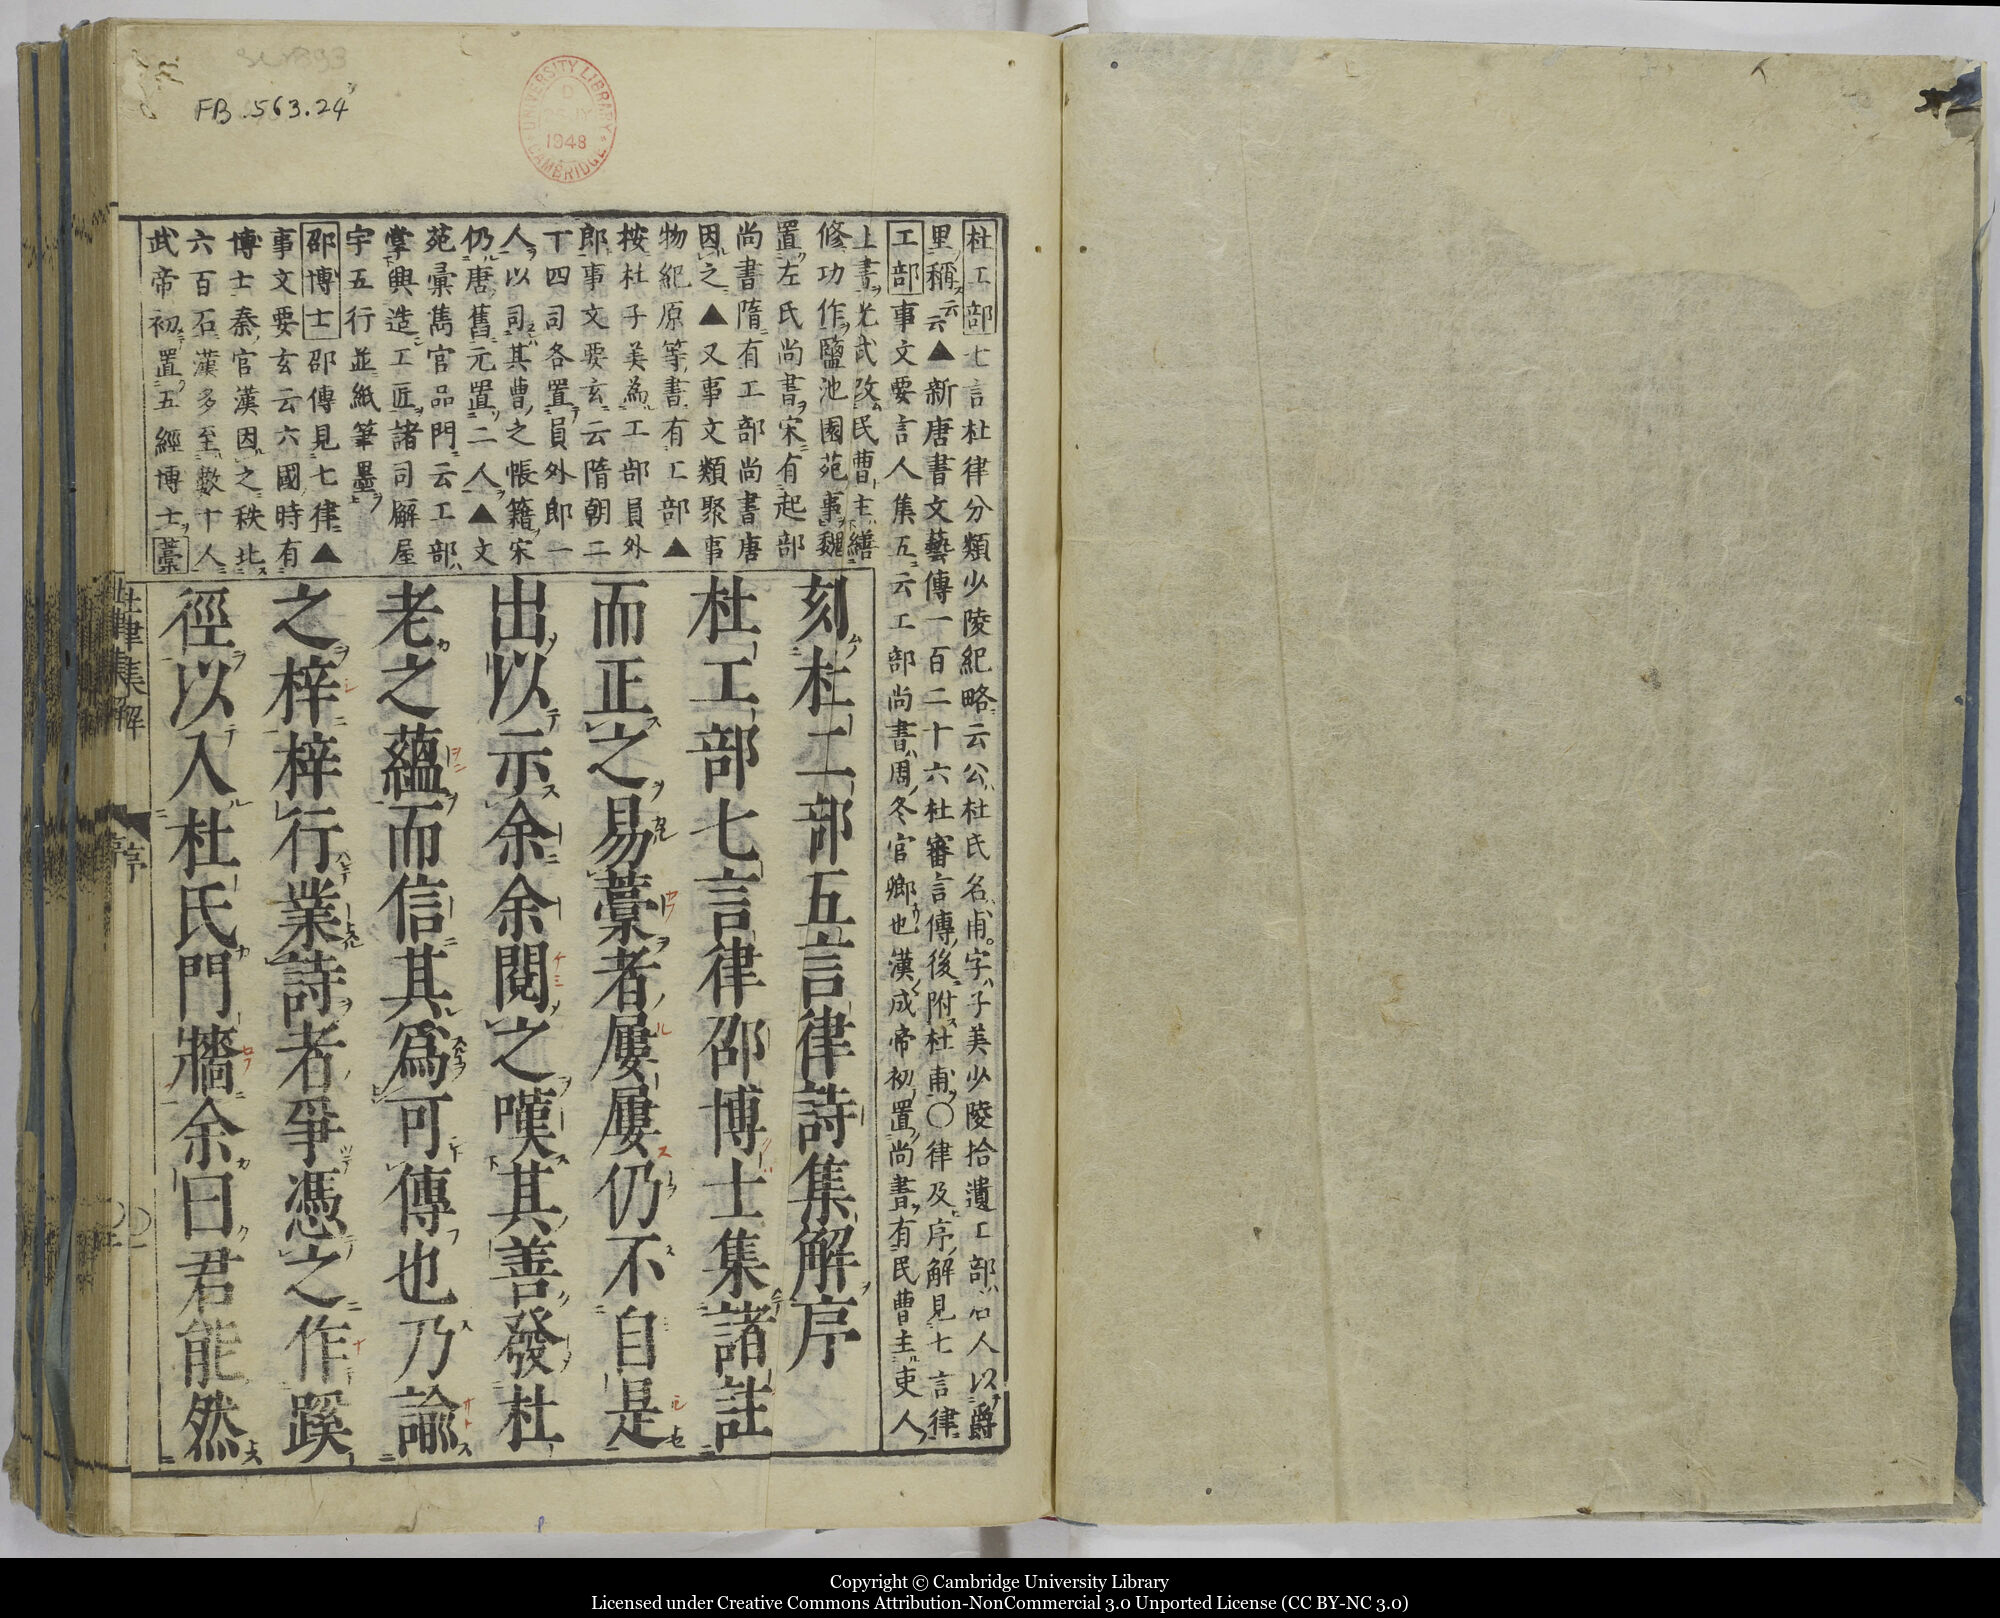 FB.563.24
UNIVERSITY LIBRARY
1948
CAMBRIDGE
杜工部七言杜律分類少陵紀略云公杜氏名甫字子美少陵拾遺工部召人以爵
里稱云云▲新唐書文藝傳一百二十六杜審言傳後附杜甫○律及序解見七言律
工部事文要言人集五云工部尚書周冬官卿也漢成帝初置尚書有民曹主吏人
上書光武改民曹主繕
修功作鹽池園苑事魏
置左氏尚書宋有起部
尚書隋有工部尚書唐
因之▲又事文類聚事
物紀原等書有工部▲
按杜子美為工部員外
郎事文要玄云隋朝二
丁四司各置員外郎一
人以司其曹之帳籍宋
仍唐舊元置二人▲文
苑彙雋官品門云工部
掌興造工匠諸司廨屋
宇五行並紙筆墨
邵博士邵傳見七律▲
事文要玄云六國時有
博士秦官漢因之秩比
六百石漢多至數十人
武帝初置五經博士藁
刻杜工部五言律詩集解序
杜工部七言律邵博士集諸註
而正之易藁者屢屢仍不自是
出以示余余閱之嘆其善發杜
老之蘊而信其爲可傳也乃諭
之梓梓行業詩者爭憑之作蹊
徑以入杜氏門牆余曰君能然
杜律集解
序
Copyright © Cambridge University Library
Licensed under Creative Commons Attribution-NonCommercial 3.0 Unported License (CC BY-NC 3.0)